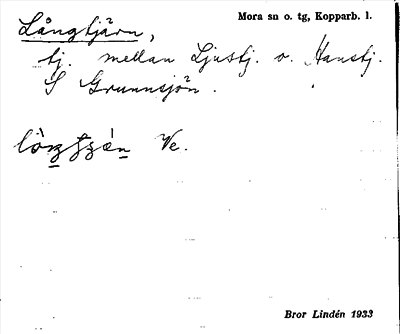 Mora sn o. tg, Kopparb. l.
Långtjärn,
tj. mellan Ljustj. o. Hanstj.
S Grunnsjön.
Ve.
Bror Lindén 1933